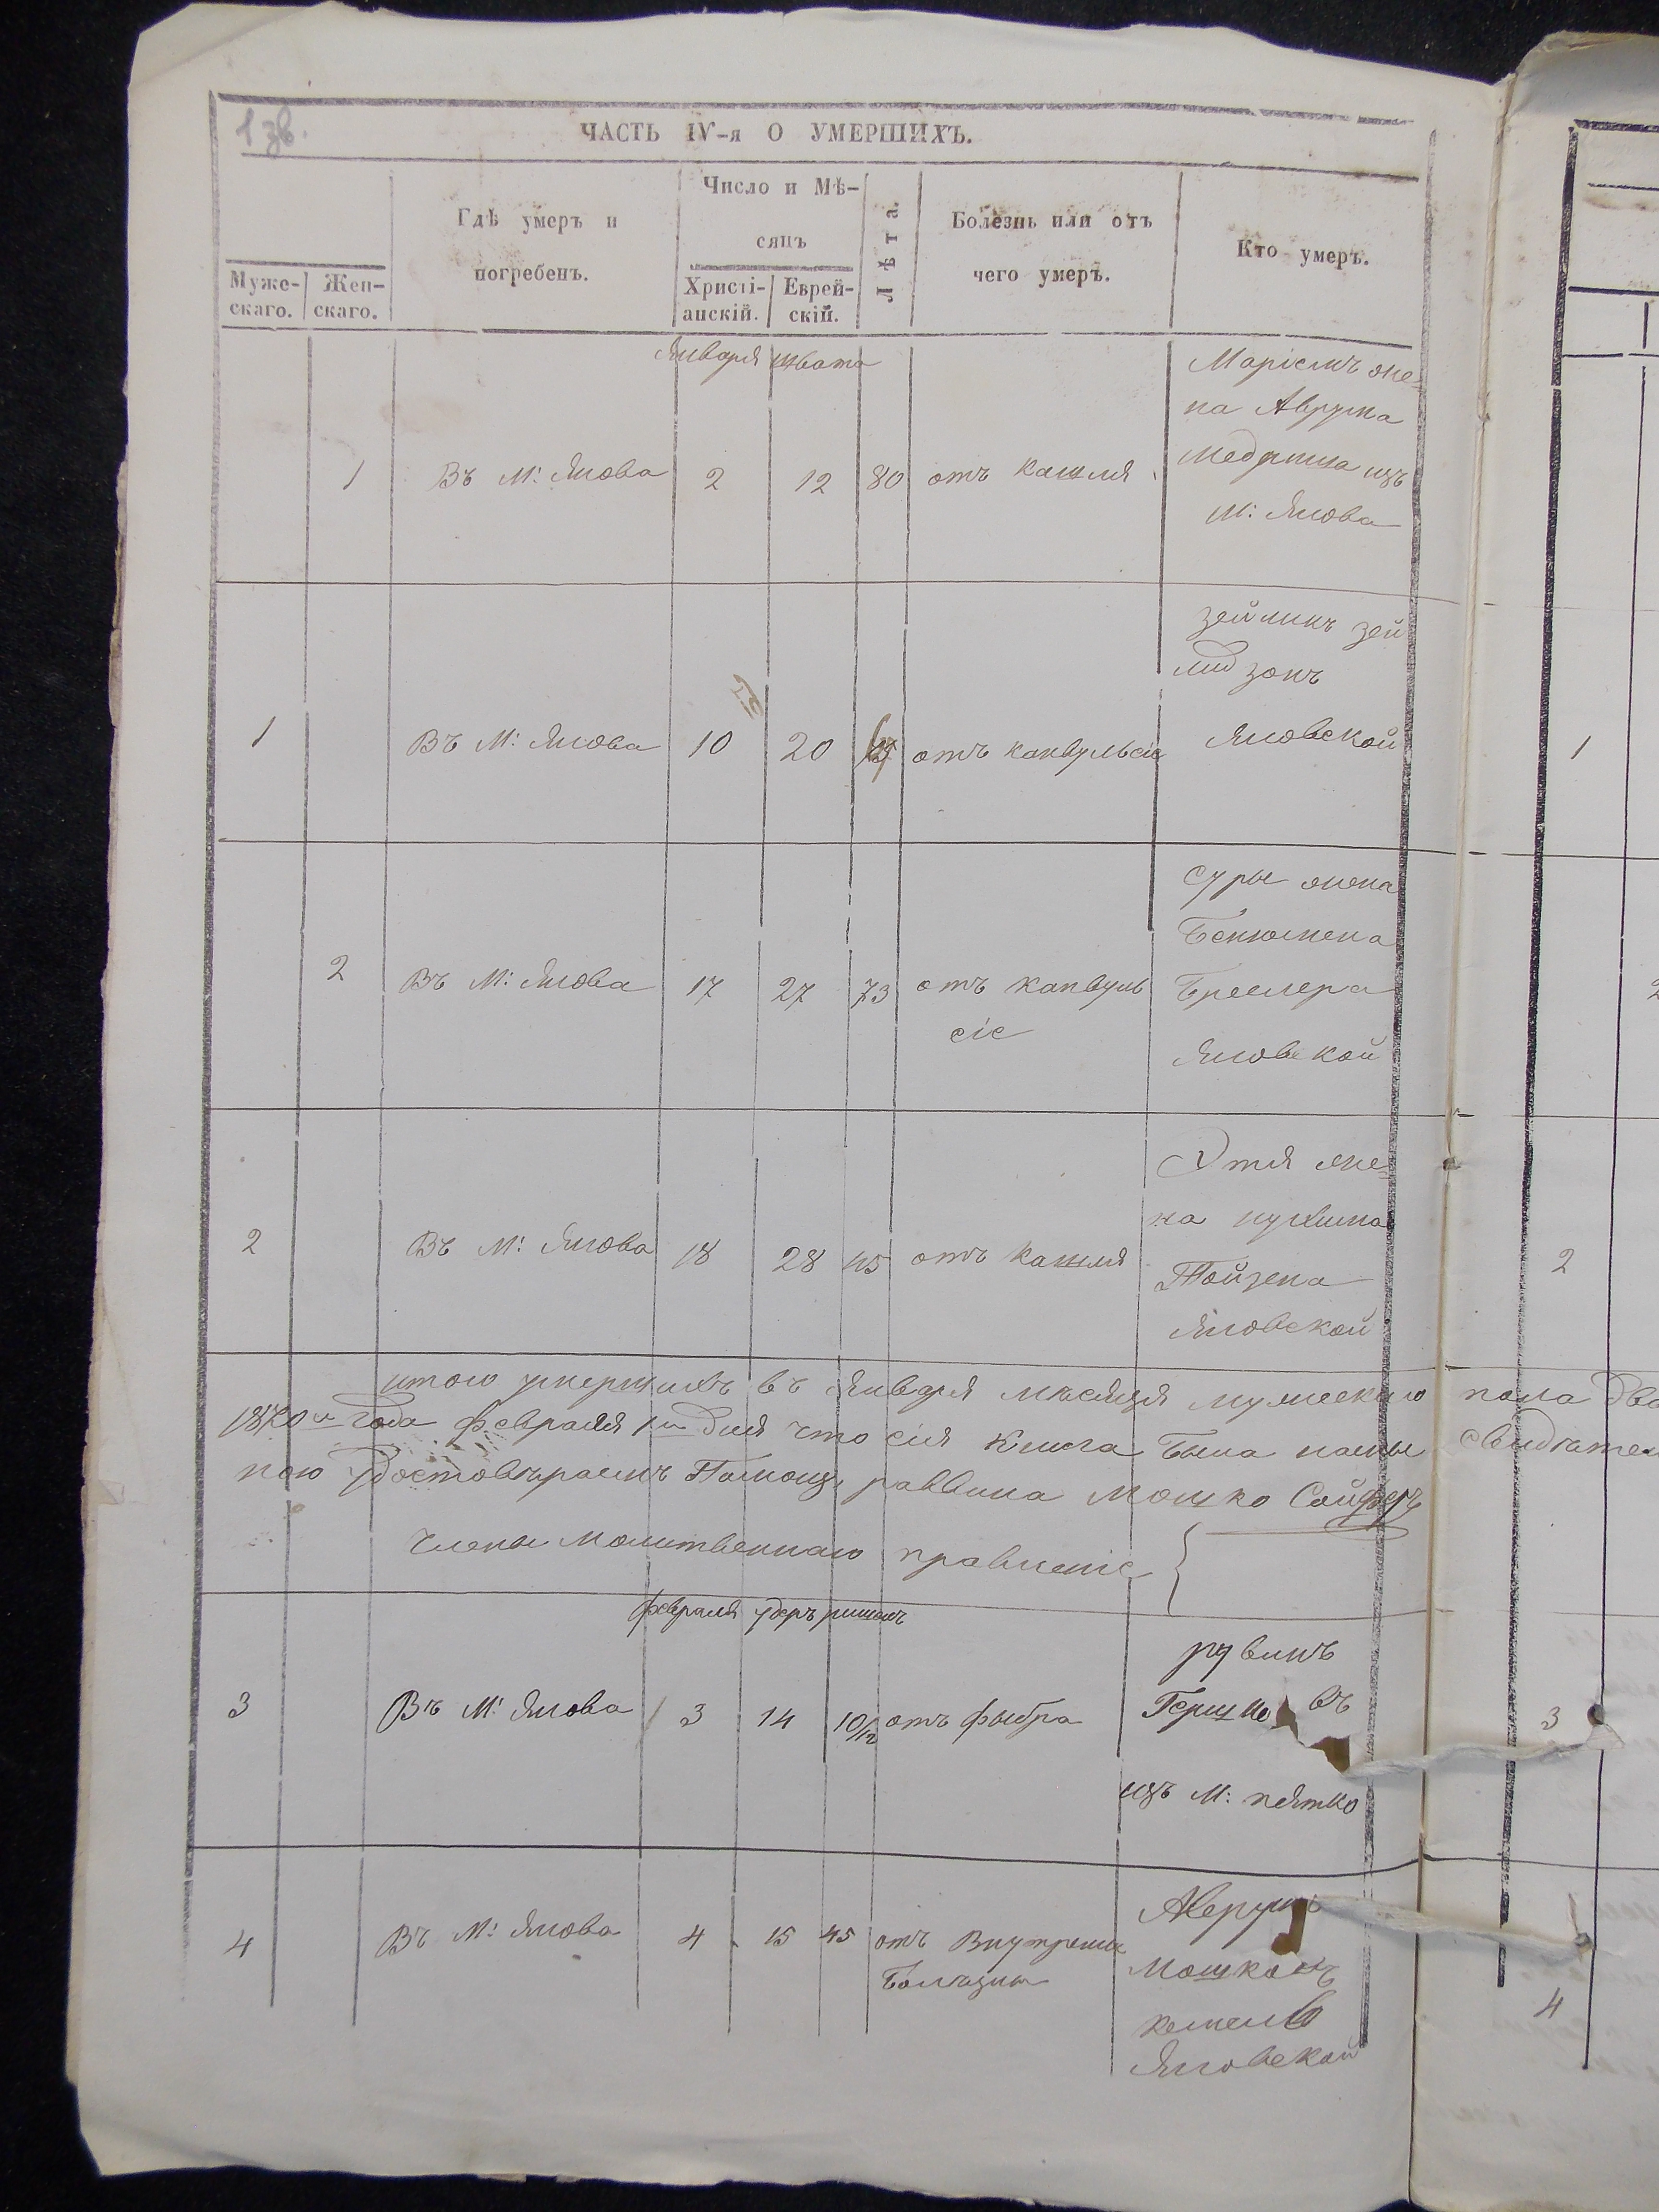 1 зв.
ЧАСТЬ IV-я О УМЕРШИХЪ.
Муже-
скаго.
Жен-
скаго.
Гдѣ умеръ и
погребенъ.
Число и Мѣ-
сяцъ
Христі-
анскій.
Еврей-
скій.
Лѣта.
Болезнь или отъ
чего умеръ.
Кто умеръ.
Января Швата
1 Въ М: Янова 2 12 80 отъ кашля
Маріемъ же-
на Аврума
изъ
М: Янова
1 Въ М: Янова 10 20 отъ канвульсіе
Зейликъ Зей
лидзонъ
Яновской
2 Въ М: Янова 17 27 73 отъ канвуль
сіе
Суры жона
Бенюмена
Бреслера
Яновской
2 Въ М: Янова 18 28 45 отъ кашля
Этля же-
на
Тойзена
Яновской
итого умершихъ въ Января мѣсяця мужескаго пола два
1870го года Февраля 1го дня что сія книга была нами свидѣтел
ною удостовѣраемъ Помощ. раввина Мошко Сойферъ
Члены Молитвеннаго правленіе
Февраля Удеръ ришонъ
3 Въ М: Янова 3 14 10/12 отъ фыбра
Рувинъ
изъ М: Пятко
4 Въ М: Янова 4 15 45 отъ Внутрение
Болѣзни
Аврумъ
Мошковъ
Яновской
1
2
3
4